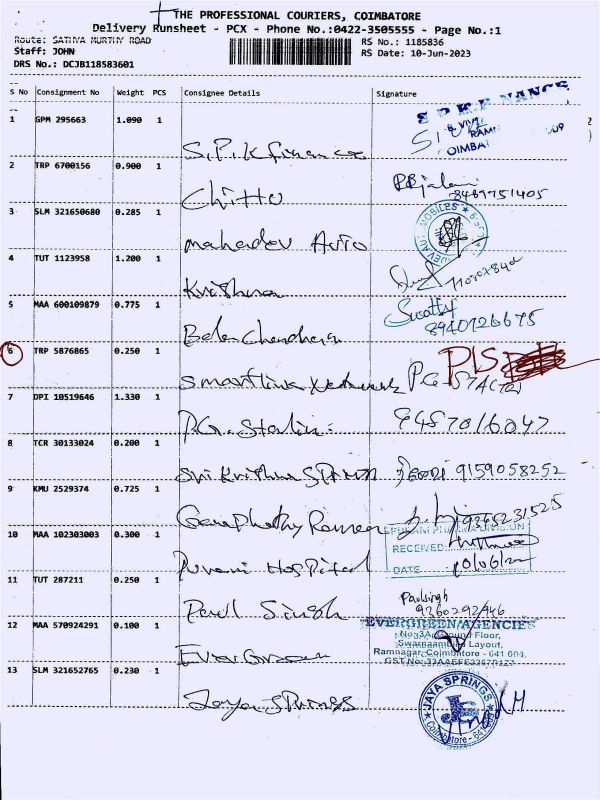 THE PROFESSIONAL COURIERS, COIMBATORE
Delivery Runsheet - PCX - Phone No.:0422-3505555 - Page No.:1
Route: SATHYA MURTHY ROAD RS No.: 1185836
Staff: JOHN RS Date: 10-Jun-2023
DRS No.: DCJB118583601
S No Consignment No Weight PCS Consignee Details Signature
1 GPM 295663 1.090 1
S.P.K finance
2 TRP 6700156 0.900 1
Chittu 8489751405
3 SLM 321650680 0.285 1
Mahadev Auto
4 TUT 1123958 1.200 1
Krithna
5 MAA 600109879 0.775 1 Swathy
Bala Chandran 8940726675
6 TRP 5876865 0.250 1 PIS
Smartlink Network
7 DPI 10519646 1.330 1 P.G. STALIN
P.G. Stalin 9487016047
8 TCR 30133024 0.200 1
Sri Krithna SPMM 9159058252
9 KMU 2529374 0.725 1
Ganaphathy Raman 9365231525
10 MAA 102303003 0.300 1 RECEIVED:
Purani Hospital DATE: 10/06/23
11 TUT 287211 0.250 1 Paulsingh
Paul Singh
12 MAA 570924291 0.100 1 EVERGREEN AGENCIES
No.3A, Ground Floor,
Swarnaambika Layout,
Evergreen Ramnagar, Coimbatore - 641 009.
13 SLM 321652765 0.230 1 JAYA SPRINGS
Jaya Springs